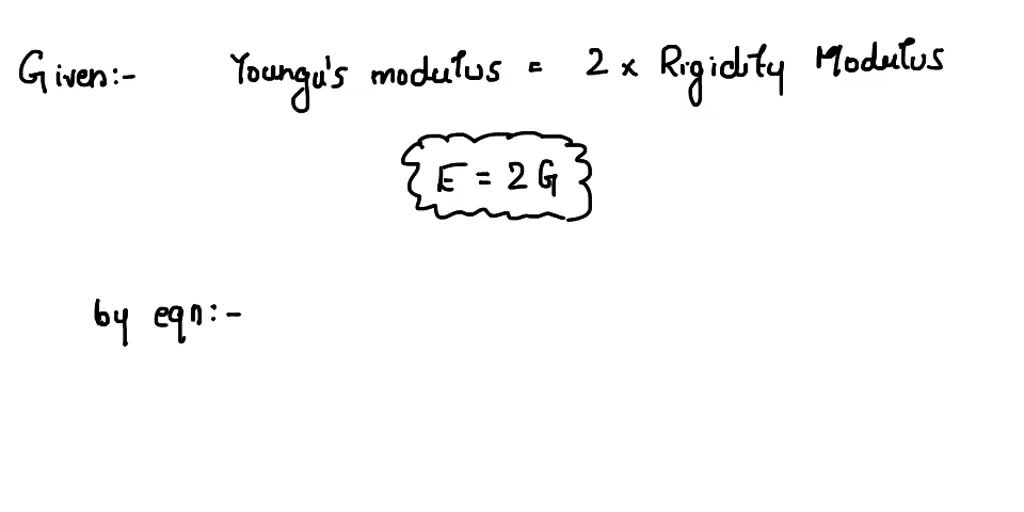 Given:- Youngu's modulus = 2 x Rigidity Modulus
E = 2G
by eqn:-